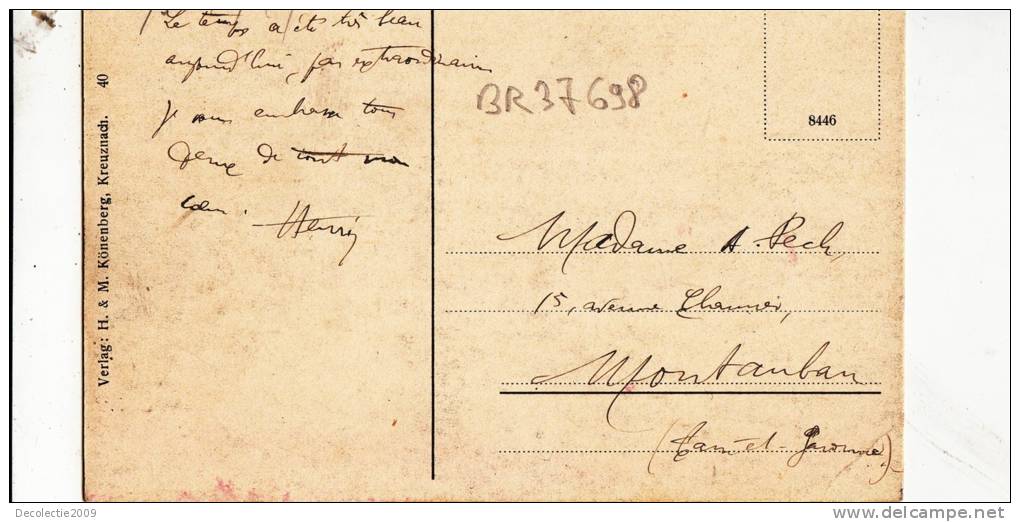 Le temps a été très beau
aujourd'hui, pas extraordinaire
Je vous embrasse tous
deux de tout mon
cœur. Henri
BR37698
8446
Madame A. Pech,
15, avenue
Montauban
(Tarn-et-Garonne)
Verlag: H. & M. Könenberg, Kreuznach. 40
Decolectie2009
www.delcampe.net